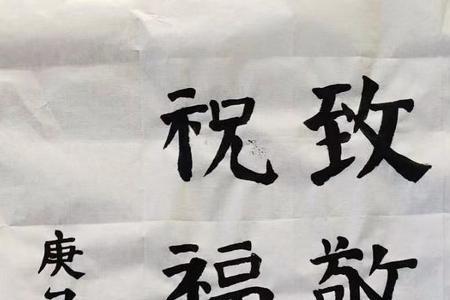 致敬
祝福
庚